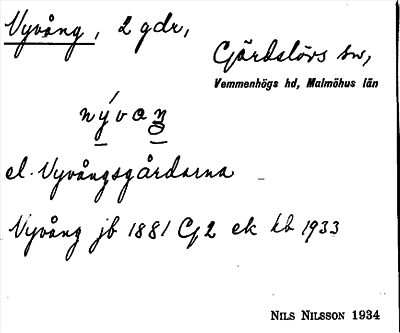 Nyvång, 2 gdr,
Gärdslövs sn,
Vemmenhögs hd, Malmöhus län
nývaŋ
el. Nyvångsgårdarna
Nyvång jb 1881 G2 ek kb 1933
NILS NILSSON 1934